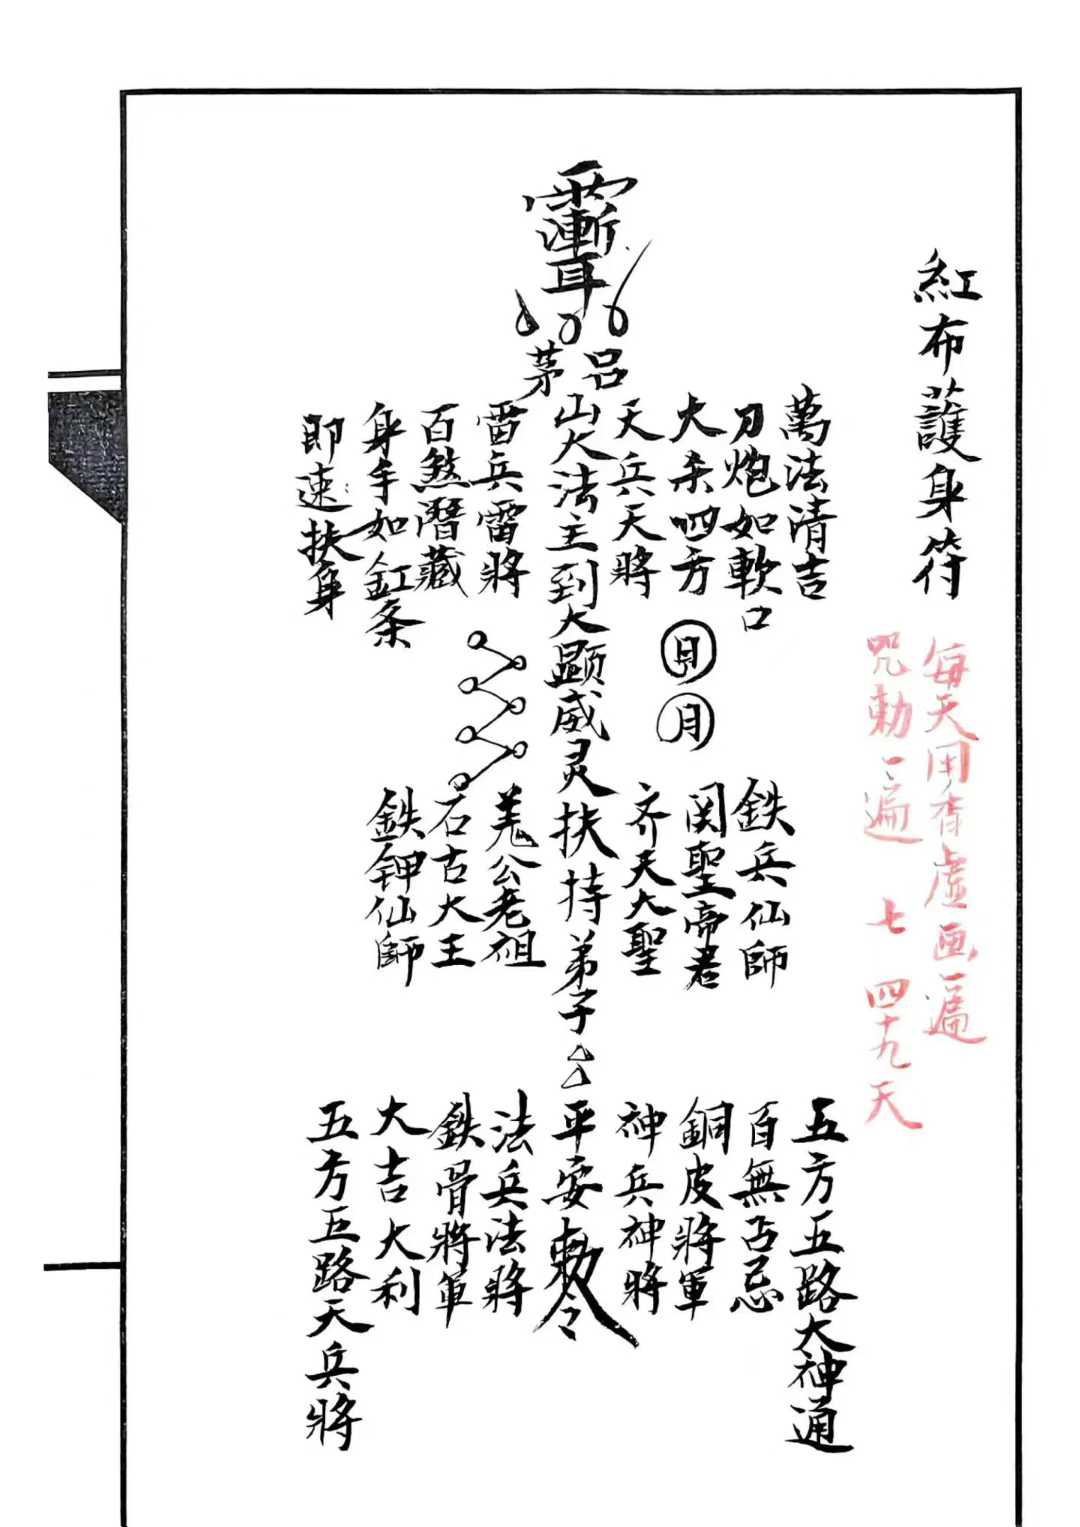 紅布護身符
每天用香虛画一遍
咒勅一遍 七 四十九天
雨漸耳
茅呂
山大法主到大顕威灵扶持弟子
平安勅令
萬法清吉
刀炮如軟口
大杀四方
天兵天將
雷兵雷將
百煞潛藏
身手如釭条
即速扶身
日
月
鉄兵仙師
関聖帝君
齐天大聖
羗公老祖
石古大王
鉄钾仙師
五方五路大神通
百無占忌
銅皮將軍
神兵神將
法兵法將
鉄骨將軍
大吉大利
五方五路天兵將